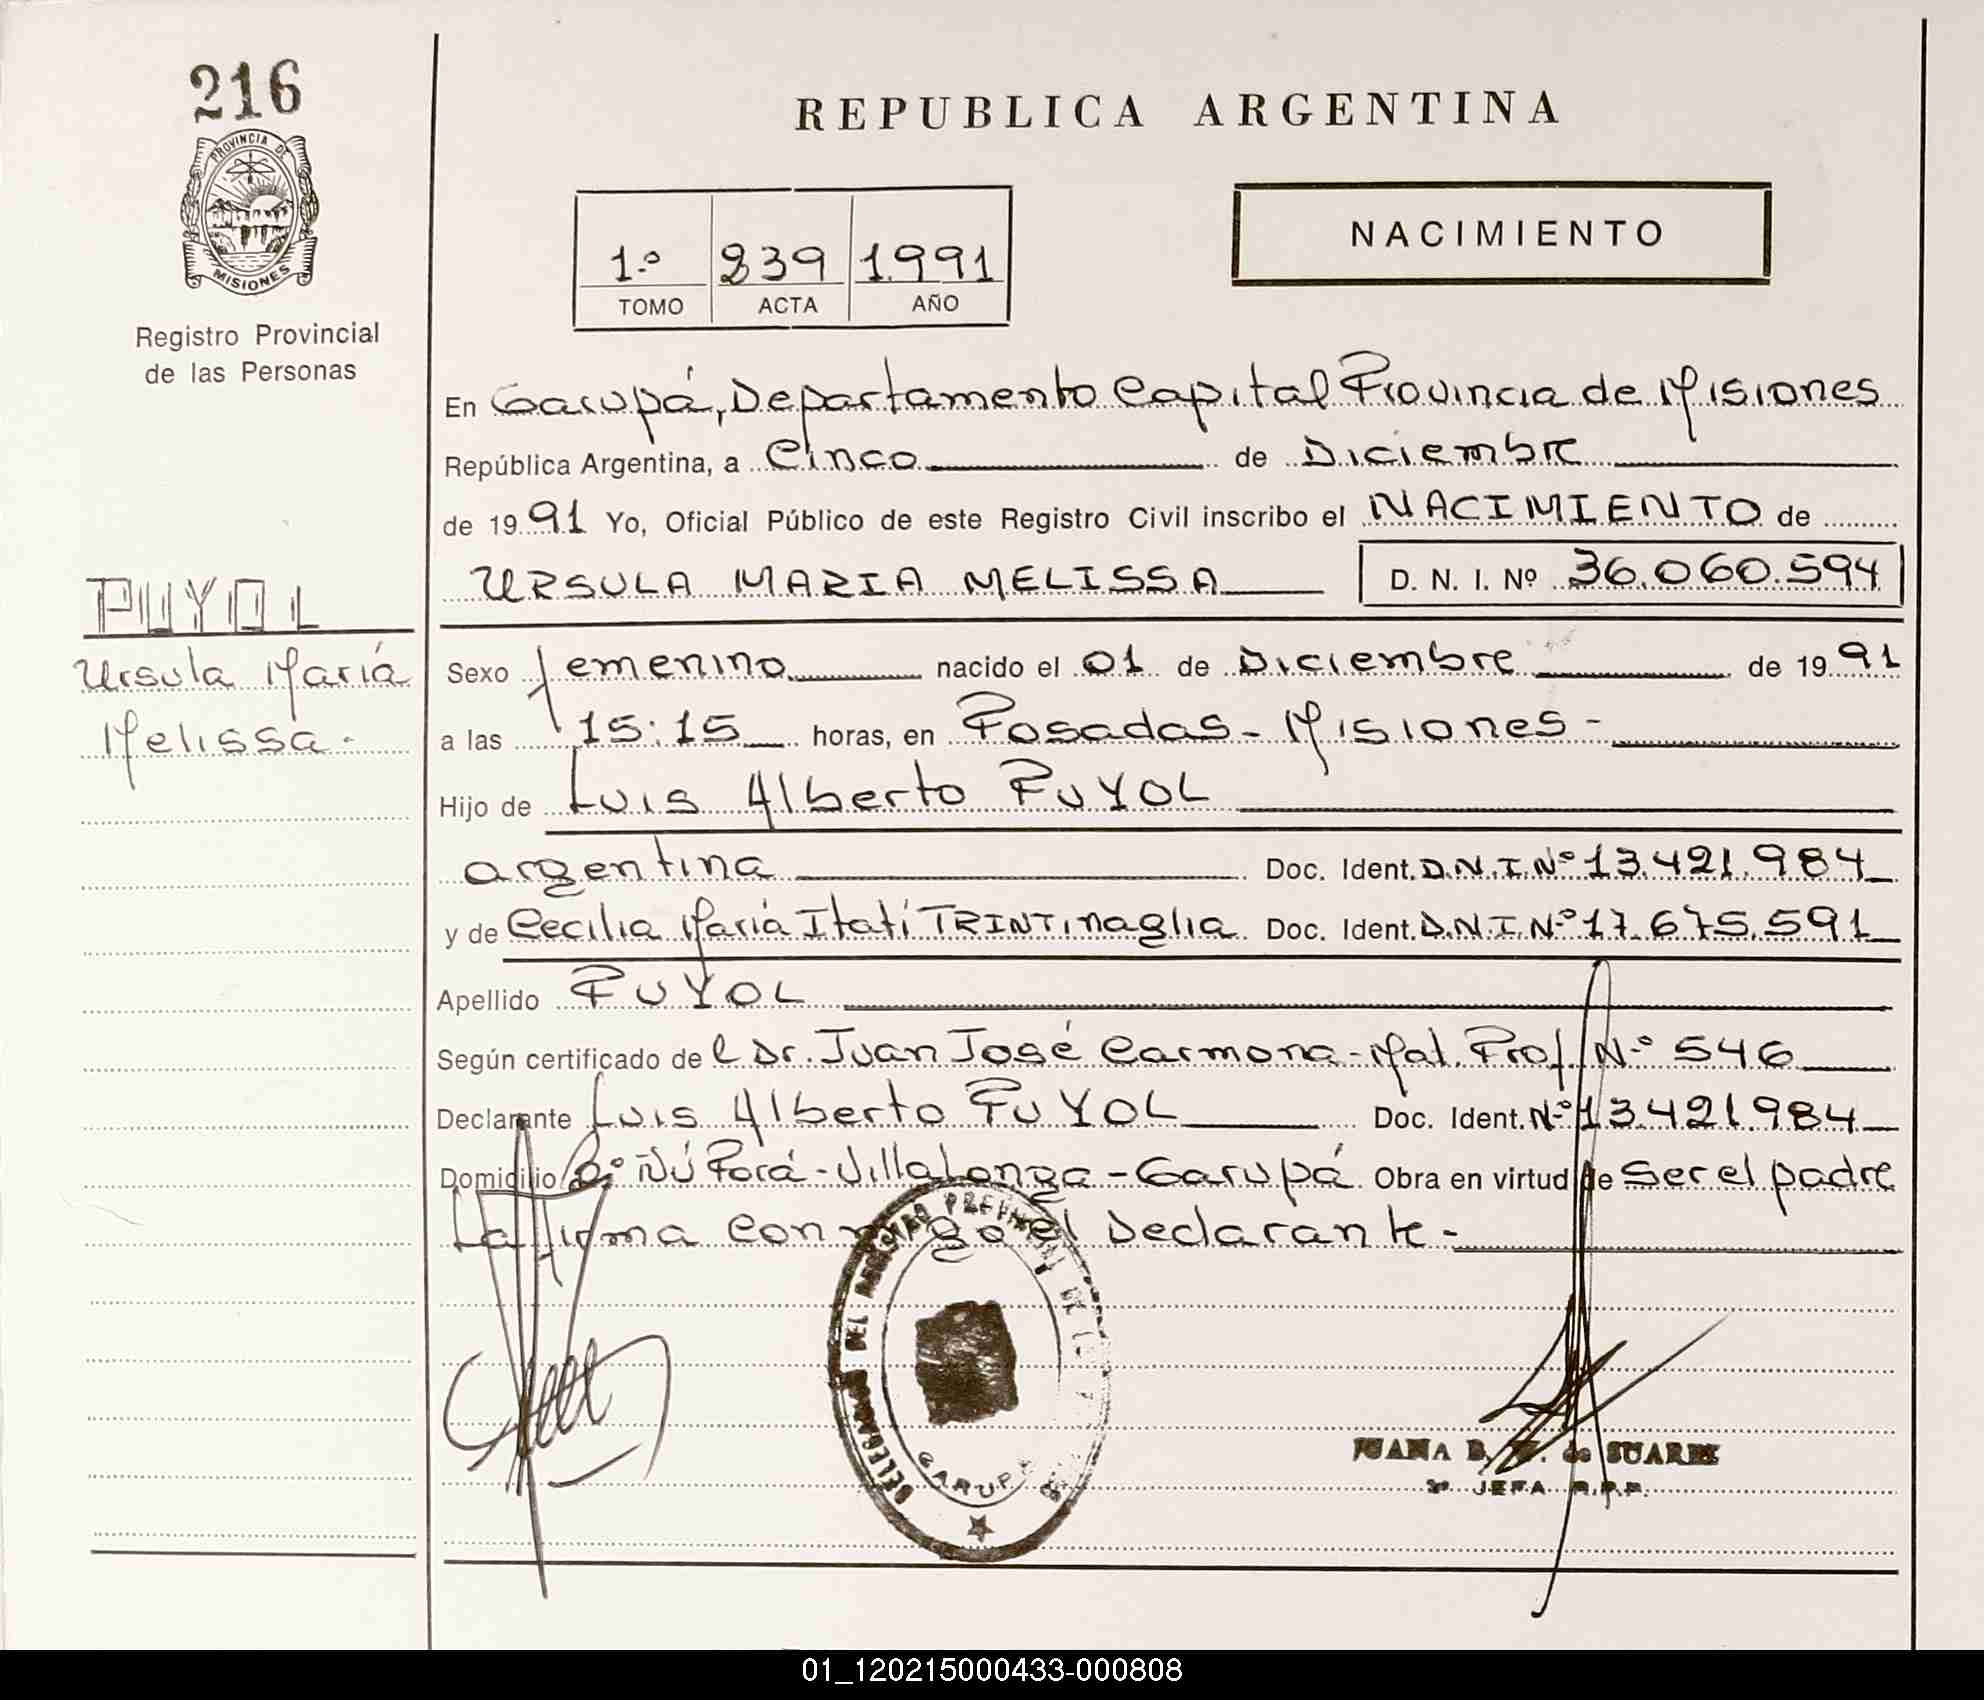 216
PROVINCIA DE
MISIONES
Registro Provincial
de las Personas
PUYOL
Ursula María
Melissa.-
REPUBLICA ARGENTINA
NACIMIENTO
1.º 239 1.991
TOMO ACTA AÑO
En Garupá, Departamento Capital Provincia de Misiones
República Argentina, a Cinco de Diciembre
de 1991 Yo, Oficial Público de este Registro Civil inscribo el NACIMIENTO de
URSULA MARIA MELISSA D. N. I. Nº 36.060.594
Sexo femenino nacido el 01 de Diciembre de 1991
a las 15:15 horas, en Posadas - Misiones -
Hijo de Luis Alberto PUYOL
argentina Doc. Ident. D.N.I. Nº 13.421.984
y de Cecilia María Itatí TRINTINaglia Doc. Ident. D.N.I. Nº 17.675.591
Apellido PUYOL
Según certificado de l Dr. Juan José Carmona - Mat. Prof. Nº 546
Declarante Luis Alberto PUYOL Doc. Ident. Nº 13.421.984
Domicilio Bº Ñú Porá - Villalonga - Garupá Obra en virtud de Ser el padre
La firma conmigo el Declarante -
DELEGACION DEL REGISTRO PROVINCIAL DE LAS
GARUPA
JUANA B. de SUAREZ
JEFA R.P.P.
01_120215000433-000808